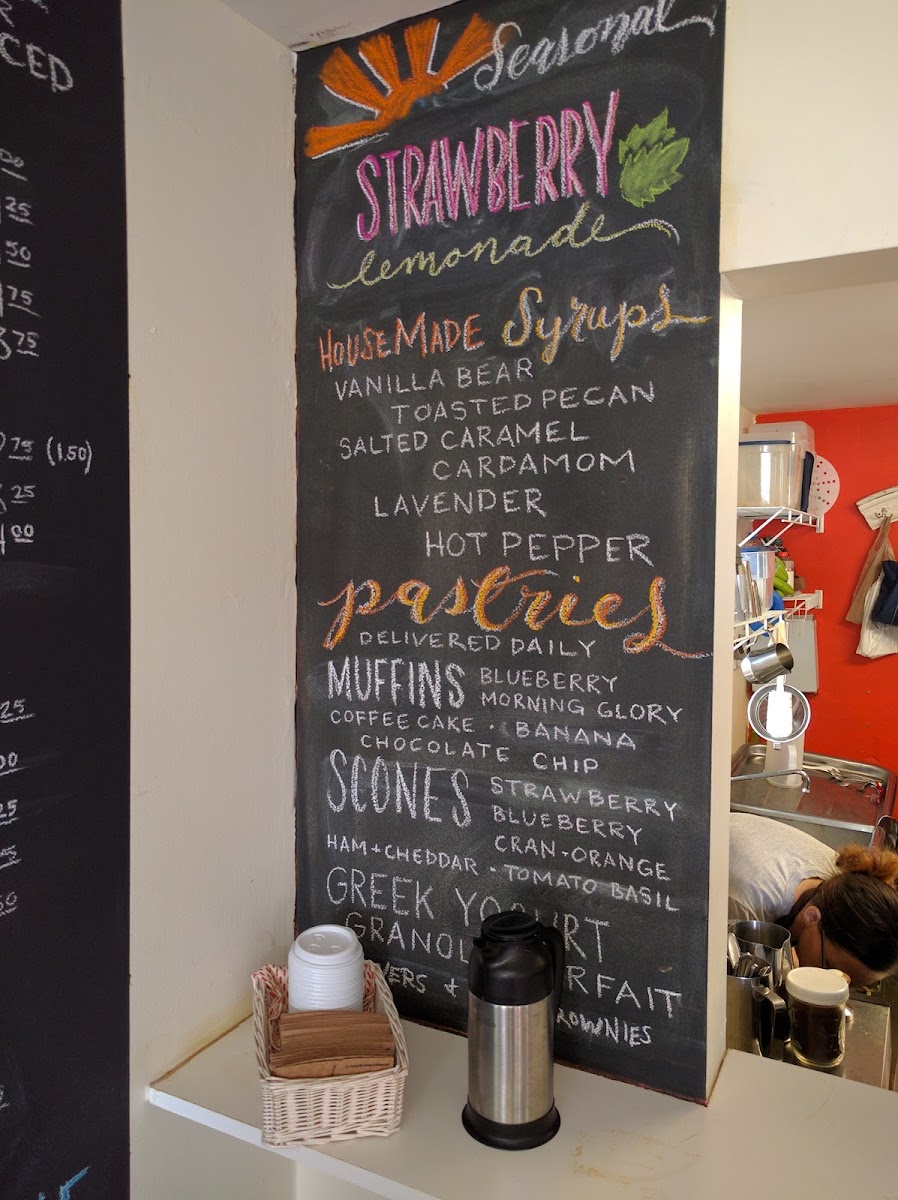 CED
25
50
75
75
75 (1.50)
25
00
25
00
25
Seasonal
STRAWBERRY
lemonade
HOUSEMADE Syrups
VANILLA BEAR
TOASTED PECAN
SALTED CARAMEL
CARDAMOM
LAVENDER
HOT PEPPER
pastries
DELIVERED DAILY
MUFFINS BLUEBERRY
MORNING GLORY
COFFEE CAKE · BANANA
CHOCOLATE CHIP
SCONES STRAWBERRY
BLUEBERRY
CRAN-ORANGE
HAM + CHEDDAR · TOMATO BASIL
GREEK YOGURT
GRANOL RFAIT
VERS +
ROWNIES